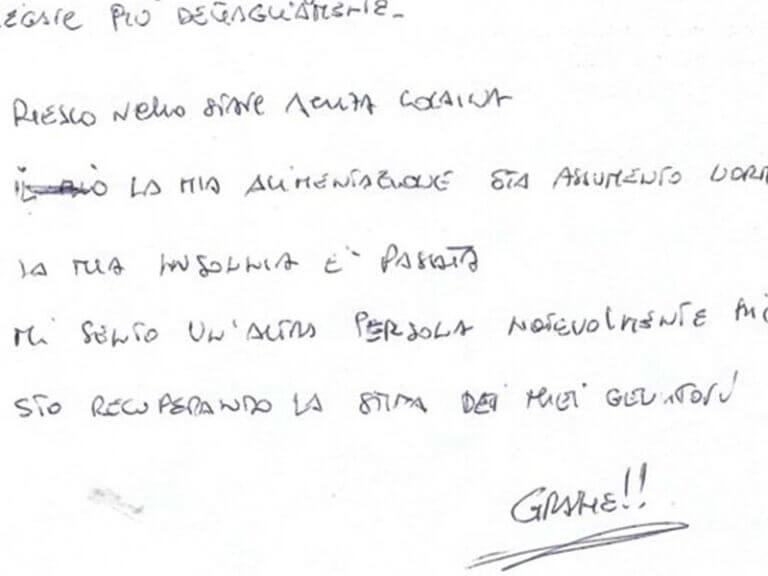 PIÙ DETTAGLIATAMENTE.
RIESCO NELLO STARE SENZA COCAINA
LA MIA ALIMENTAZIONE STA ASSUMENTO
LA MIA INSONNIA E' PASSATA
MI SENTO UN'ALTRA PERSONA NOTEVOLMENTE
STO RECUPERANDO LA STIMA DEI MIEI GENITORI
GRAZIE!!